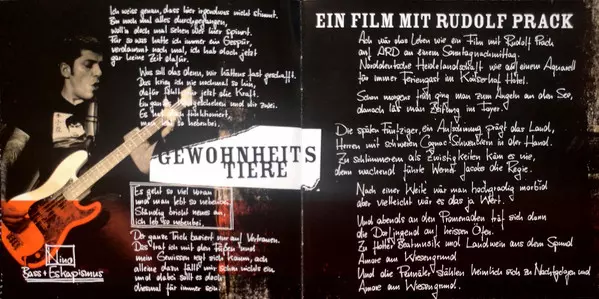 Ich weiss genau, dass hier irgendwas nicht stimmt.
Bin noch mal alles durchgegangen,
wollt's doch mal sehen wer hier spinnt.
Für so was hatte ich immer ein Gespür,
verdammt noch mal, ich hab doch jetzt
gar keine Zeit dafür.
Was soll das denn, wir hätten's fast geschafft.
Das krieg ich nie nochmal so hin,
dafür fehlt mir jetzt die Kraft.
Ein ganz und wir zwei.
Es hat doch funktioniert,
nebenbei.
GEWOHNHEITS
TIERE
Es geht so viel voran
und man lebt so nebenbei
Ständig bricht neues an
ich leb so nebenbei
Der ganze Trick basiert nur auf Vertrauen.
Das trat ich mit den Füßen und
mein Gewissen regt sich kaum, ach
alleine dazu fällt mir schon nichts ein
und dabei sollt es doch
diesmal für immer sein
Nino
Bass + Eskapismus
EIN FILM MIT RUDOLF PRACK
Ach wär das Leben wie ein Film mit Rudolf Prack
auf ARD an einem Sonntagnachmittag
Norddeutsche Heidelandschaft wie auf einem Aquarell
für immer Feriengast im Kaiserhof Hotel.
Schon morgens früh ging man zum Angeln an den See,
danach las man Zeitung im Foyer.
Die späten Fünfziger, ein Aufschwung prägt das Land,
Herren mit schweren Cognac-Schwenkern in der Hand.
Zu Schlimmerem als Zwistigkeiten käm es nie,
denn wachend führte Werner Jacobs die Regie.
Nach einer Weile wär man hochgradig morbid
aber vielleicht wär es das ja Wert.
Und abends an den Promenaden träf sich dann
die Dorfjugend auf heissen Öfen.
Zu toller Beatmusik und Landwein aus dem Spund
Amore am Wiesengrund
Und die Pennäler stählen heimlich sich zu Nachtgelagen und
Amore am Wiesengrund.